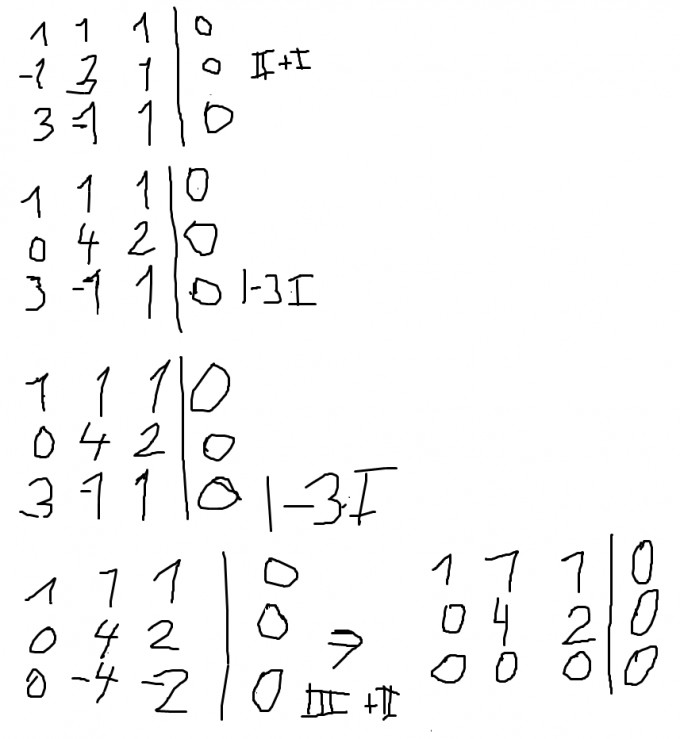 1 1 1 | 0
-1 3 1 | 0 II+I
3 -1 1 | 0
1 1 1 | 0
0 4 2 | 0
3 -1 1 | 0 |-3I
1 1 1 | 0
0 4 2 | 0
3 -1 1 | 0 |-3·I
1 1 1 | 0 1 1 1 | 0
0 4 2 | 0 ⇒ 0 4 2 | 0
0 -4 -2 | 0 III+II 0 0 0 | 0